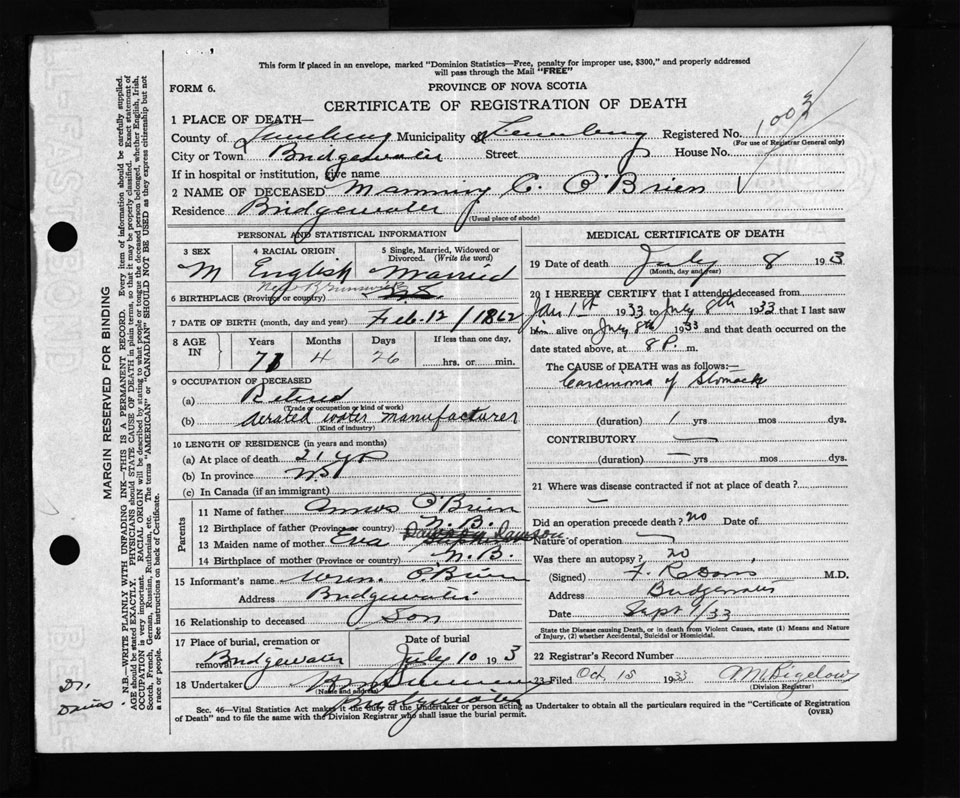 This form if placed in an envelope, marked "Dominion Statistics—Free, penalty for improper use, $300," and properly addressed
will pass through the Mail "FREE"
FORM 6.
PROVINCE OF NOVA SCOTIA
CERTIFICATE OF REGISTRATION OF DEATH
1 PLACE OF DEATH—
County of Lunenburg Municipality of Lunenburg Registered No. 1003
(For use of Registrar General only)
City or Town Bridgewater Street House No.
If in hospital or institution, give name
2 NAME OF DECEASED Manning C. O'Brien
Residence Bridgewater
(Usual place of abode)
PERSONAL AND STATISTICAL INFORMATION
3 SEX M
4 RACIAL ORIGIN English
5 Single, Married, Widowed or Divorced. (Write the word) Married
6 BIRTHPLACE (Province or country) New Brunswick
7 DATE OF BIRTH (month, day and year) Feb. 12 / 1862
8 AGE IN
Years Months Days If less than one day,
71 4 26 hrs. or min.
9 OCCUPATION OF DECEASED
(a) Retired
(Trade or occupation or kind of work)
(b) Aerated water manufacturer
(Kind of industry)
10 LENGTH OF RESIDENCE (in years and months)
(a) At place of death 21 yrs
(b) In province
(c) In Canada (if an immigrant)
Parents
11 Name of father Amos O'Brien
12 Birthplace of father (Province or country) N.B.
13 Maiden name of mother Eva Dawson
14 Birthplace of mother (Province or country) N.B.
15 Informant's name O'Brien
Address Bridgewater
16 Relationship to deceased Son
17 Place of burial, cremation or removal Bridgewater
Date of burial July 10 193 3
18 Undertaker
(Name and address)
Bridgewater
MEDICAL CERTIFICATE OF DEATH
19 Date of death July 8 193 3
(Month, day and year)
20 I HEREBY CERTIFY that I attended deceased from
Jan 1st 1933 to July 8th 1933 that I last saw
him alive on July 8th 1933 and that death occurred on
date stated above, at 8 P. m.
The CAUSE of DEATH was as follows:—
Carcinoma of Stomach
(duration) 1 yrs mos dys.
CONTRIBUTORY —
(duration) — yrs mos dys.
21 Where was disease contracted if not at place of death?
—
Did an operation precede death? no Date of
Nature of operation —
Was there an autopsy? no
(Signed) F. R. Davis M.D.
Address Bridgewater
Date Sept 9/33
State the Disease causing Death, or in death from Violent Causes, state (1) Means and Nature
of Injury, (2) whether Accidental, Suicidal or Homicidal.
22 Registrar's Record Number
23 Filed Oct 15 1933 M Bigelow
(Division Registrar)
Sec. 46—Vital Statistics Act makes it the duty of the Undertaker or person acting as Undertaker to obtain all the particulars required in the "Certificate of Registration
of Death" and to file the same with the Division Registrar who shall issue the burial permit.
(OVER)
MARGIN RESERVED FOR BINDING
N.B.—WRITE PLAINLY WITH UNFADING INK—THIS IS A PERMANENT RECORD. Every item of information should be carefully supplied.
AGE should be stated EXACTLY. PHYSICIANS should STATE CAUSE OF DEATH in plain terms, so that it may be properly classified. Exact statement of
OCCUPATION is very important. RACIAL ORIGIN will be described by stating to what people or tongue the deceased person belonged, whether English, Irish,
Scotch, French, German, Russian, Ruthenian, etc. The terms "AMERICAN" or "CANADIAN" SHOULD NOT BE USED as they express citizenship but not
a race or people. See instructions on back of Certificate.
Dr.
Davis